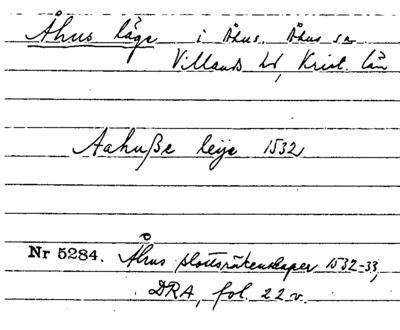 Åhus läge i Åhus, Åhus sn
Villands hd, Krist. län
Aahuße leije 1532
Nr 5284. Åhus slottsräkenskaper 1532-33,
DRA, fol. 22 v.